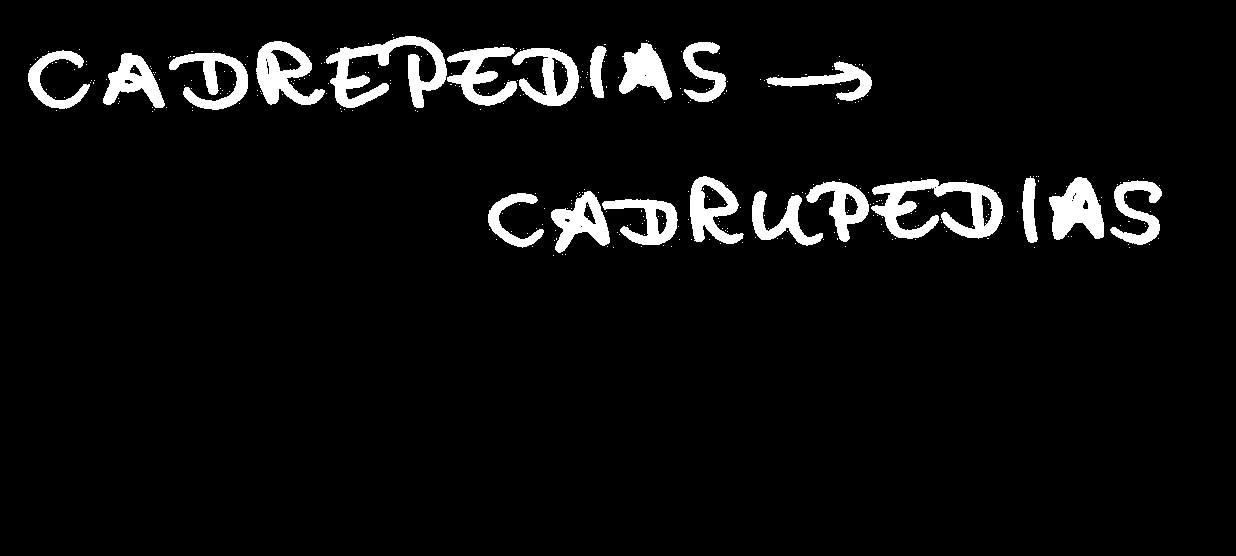 CADREPEDIAS →
CADRUPEDIAS